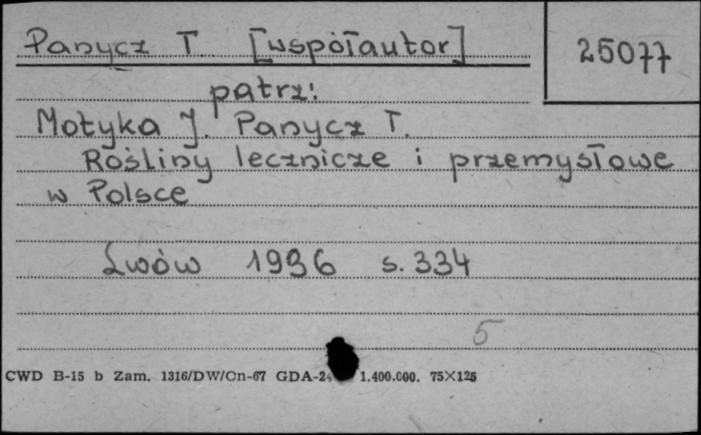 Panycz T. [współautor]
25077
patrz:
Motyka J. Panycz T.
Rośliny lecznicze i przemysłowe
w Polsce
Lwów 1936 s. 334
5
CWD B-15 b Zam. 1316/DW/Cn-67 GDA-2 1.400.000. 75×125